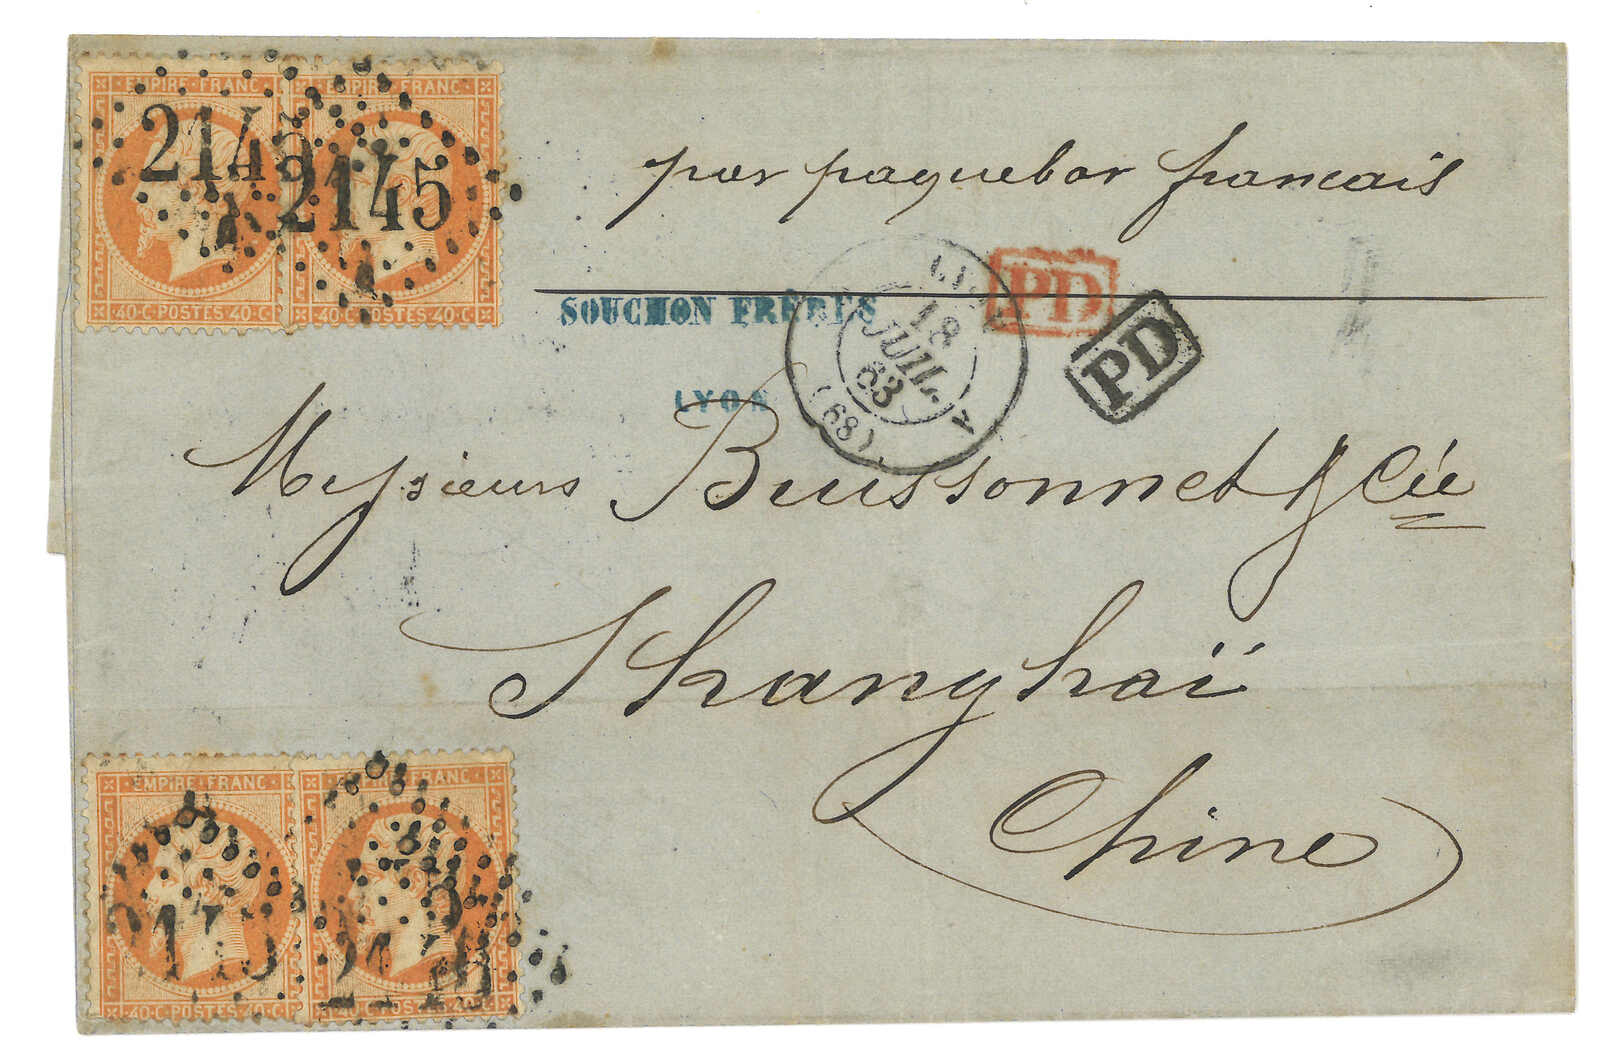 EMPIRE·FRANC EMPIRE·FRANC
2145 2145
40·C·POSTES·40·C 40·C·POSTES·40·C
par paquebot francais
SOUCHON FRÈRES
LYON
LYON
18
JUIL.
63
(68)
PD
PD
Messieurs Buissonnet & Cie
Shanghaï
Chine
EMPIRE·FRANC FRANC
2145 2145
40·C·POSTES·40·C 40·C·POSTES·40·C